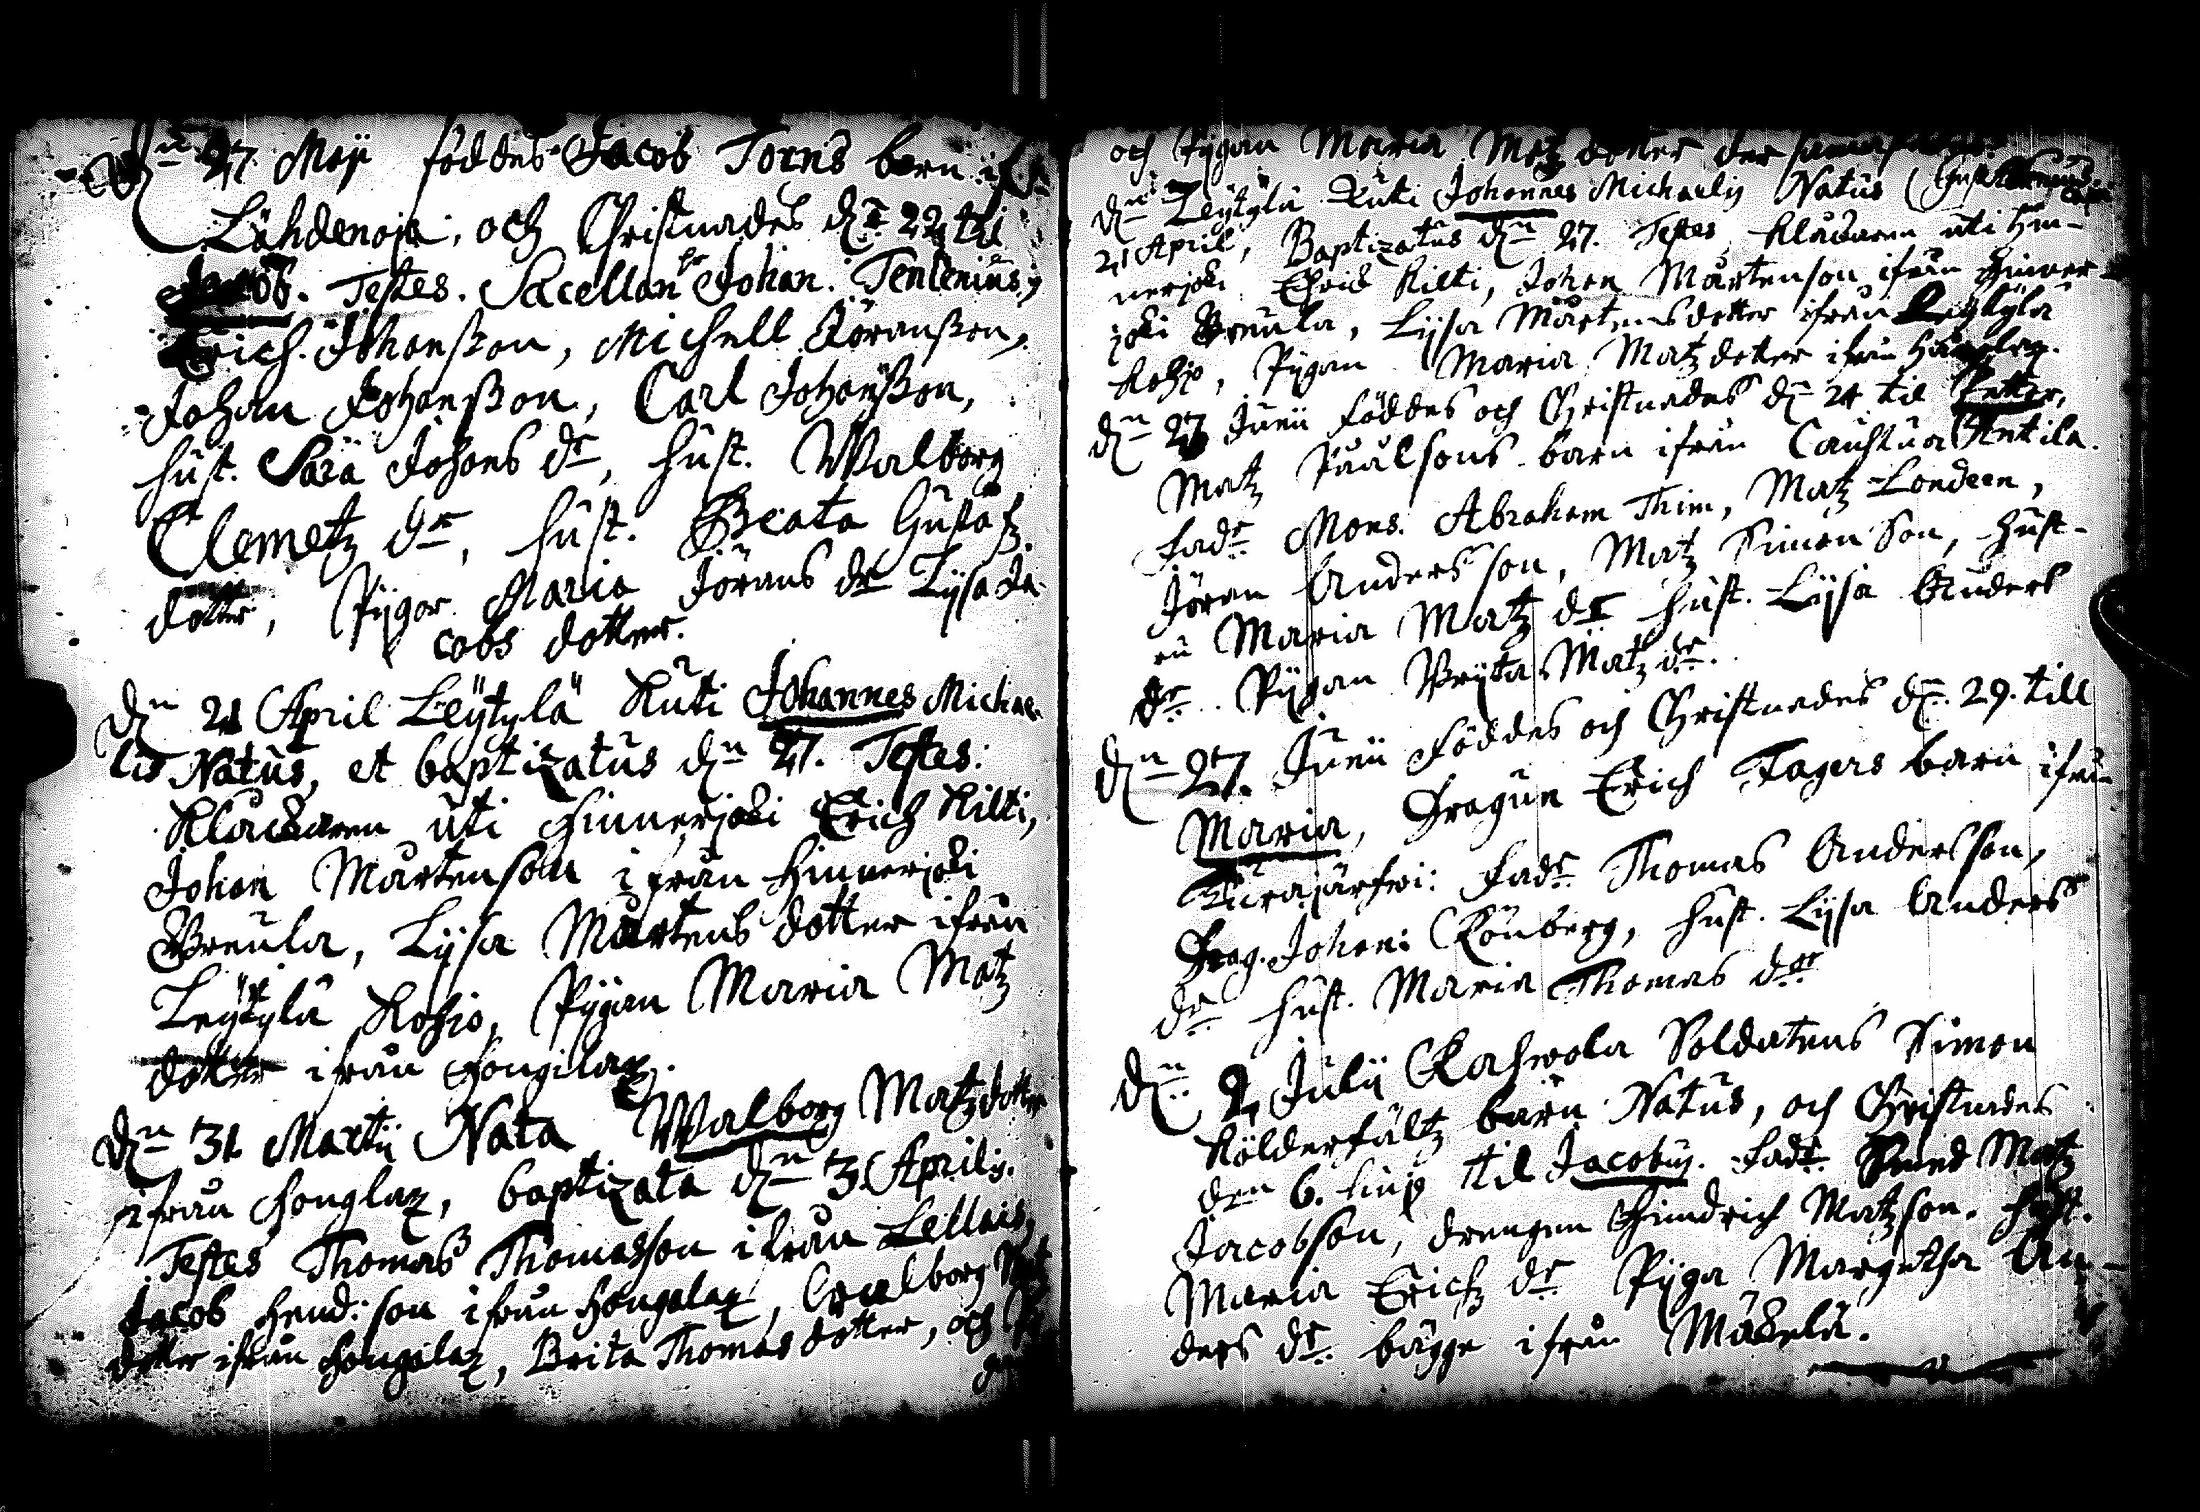 Dn 27 Maji föddes Jacob Torns barn
Lähdenoja, och Christnades dn 22 til
Jacob. Testes. Sacellan hr Johan. Tenlenius,
Erich Johanßon, Michell Jöranßon,
Johan Johanßon, Carl Johanßon,
hust. Sara Johans dr, hust. Walborg
Clemetz dr, hust. Beata Gustafz
dotter, Pygor Maria Jörans dr Lysa Ja-
cobs dotter.
Dn 21 April Leÿtylä Kuti Johannes Michae-
lis Natus, et baptizatus dn 27. Testes:
Klåckaren uti Hinnerjoki Erich Kilti,
Johan Mårtenson ifrån Hinnerjoki
Breula, Lysa Mårtens dotter ifrån
Leÿtylä Kohjo, Pygan Maria Matz
dotter ifrån Hongilax.
Dn 31 Martij Nata Walborg Matzdotter
ifrån Honglax, baptizata dn 3 Aprilis.
Testes Thomas Thomasson ifrån Lellais,
Jacob Hend:son ifrån Hongalax, Walborg
dotter ifrån Hongalax, Brita Thomas dotter, och
och Pygan Maria Matz dotter der
dn Leÿtylä Kuti Johannes Michaelis Natus
21 April, Baptizatus dn 27. Testes Klåckaren uti Hin-
nerjoki Erich Kilti, Johan Mårtenson ifrån Hinner-
joki Breula, Lysa Mårtensdotter ifrån Leÿtylä
Kohjo, Pygan Maria Matzdotter ifrån
dn 23 Junii föddes och Christnades dn 24 til Petter,
Matz Påulsons barn ifrån Cauhtua Antila.
Fadr Mons. Abraham Thim, Matz Londeen,
Jöran Andersson, Matz Simonson, Hust-
ru Maria Matz dr hust. Lysa Anders
dr. Pygan Bryta Matz dr.
Dn 27. Junii Föddes och Christnades dn 29. till
Maria, Dragun Erich Fagers barn ifrån
Turajärfwi: Fadr Thomas Andersson,
Drag. Johan: Rönberg, hust. Lysa Anders
dr hust. Maria Thomas dr
Dn 2 Julii Rahwola Soldatens Simon
Kölderfältz barn Natus, och Christnades
den 6. til Jacobus. Fadr. Smed Matz
Jacobson, drengen Hindrich Matzson. Hust.
Maria Erichz dr Pyga Margetha An-
ders dr. bägge ifrån Mäkelä.